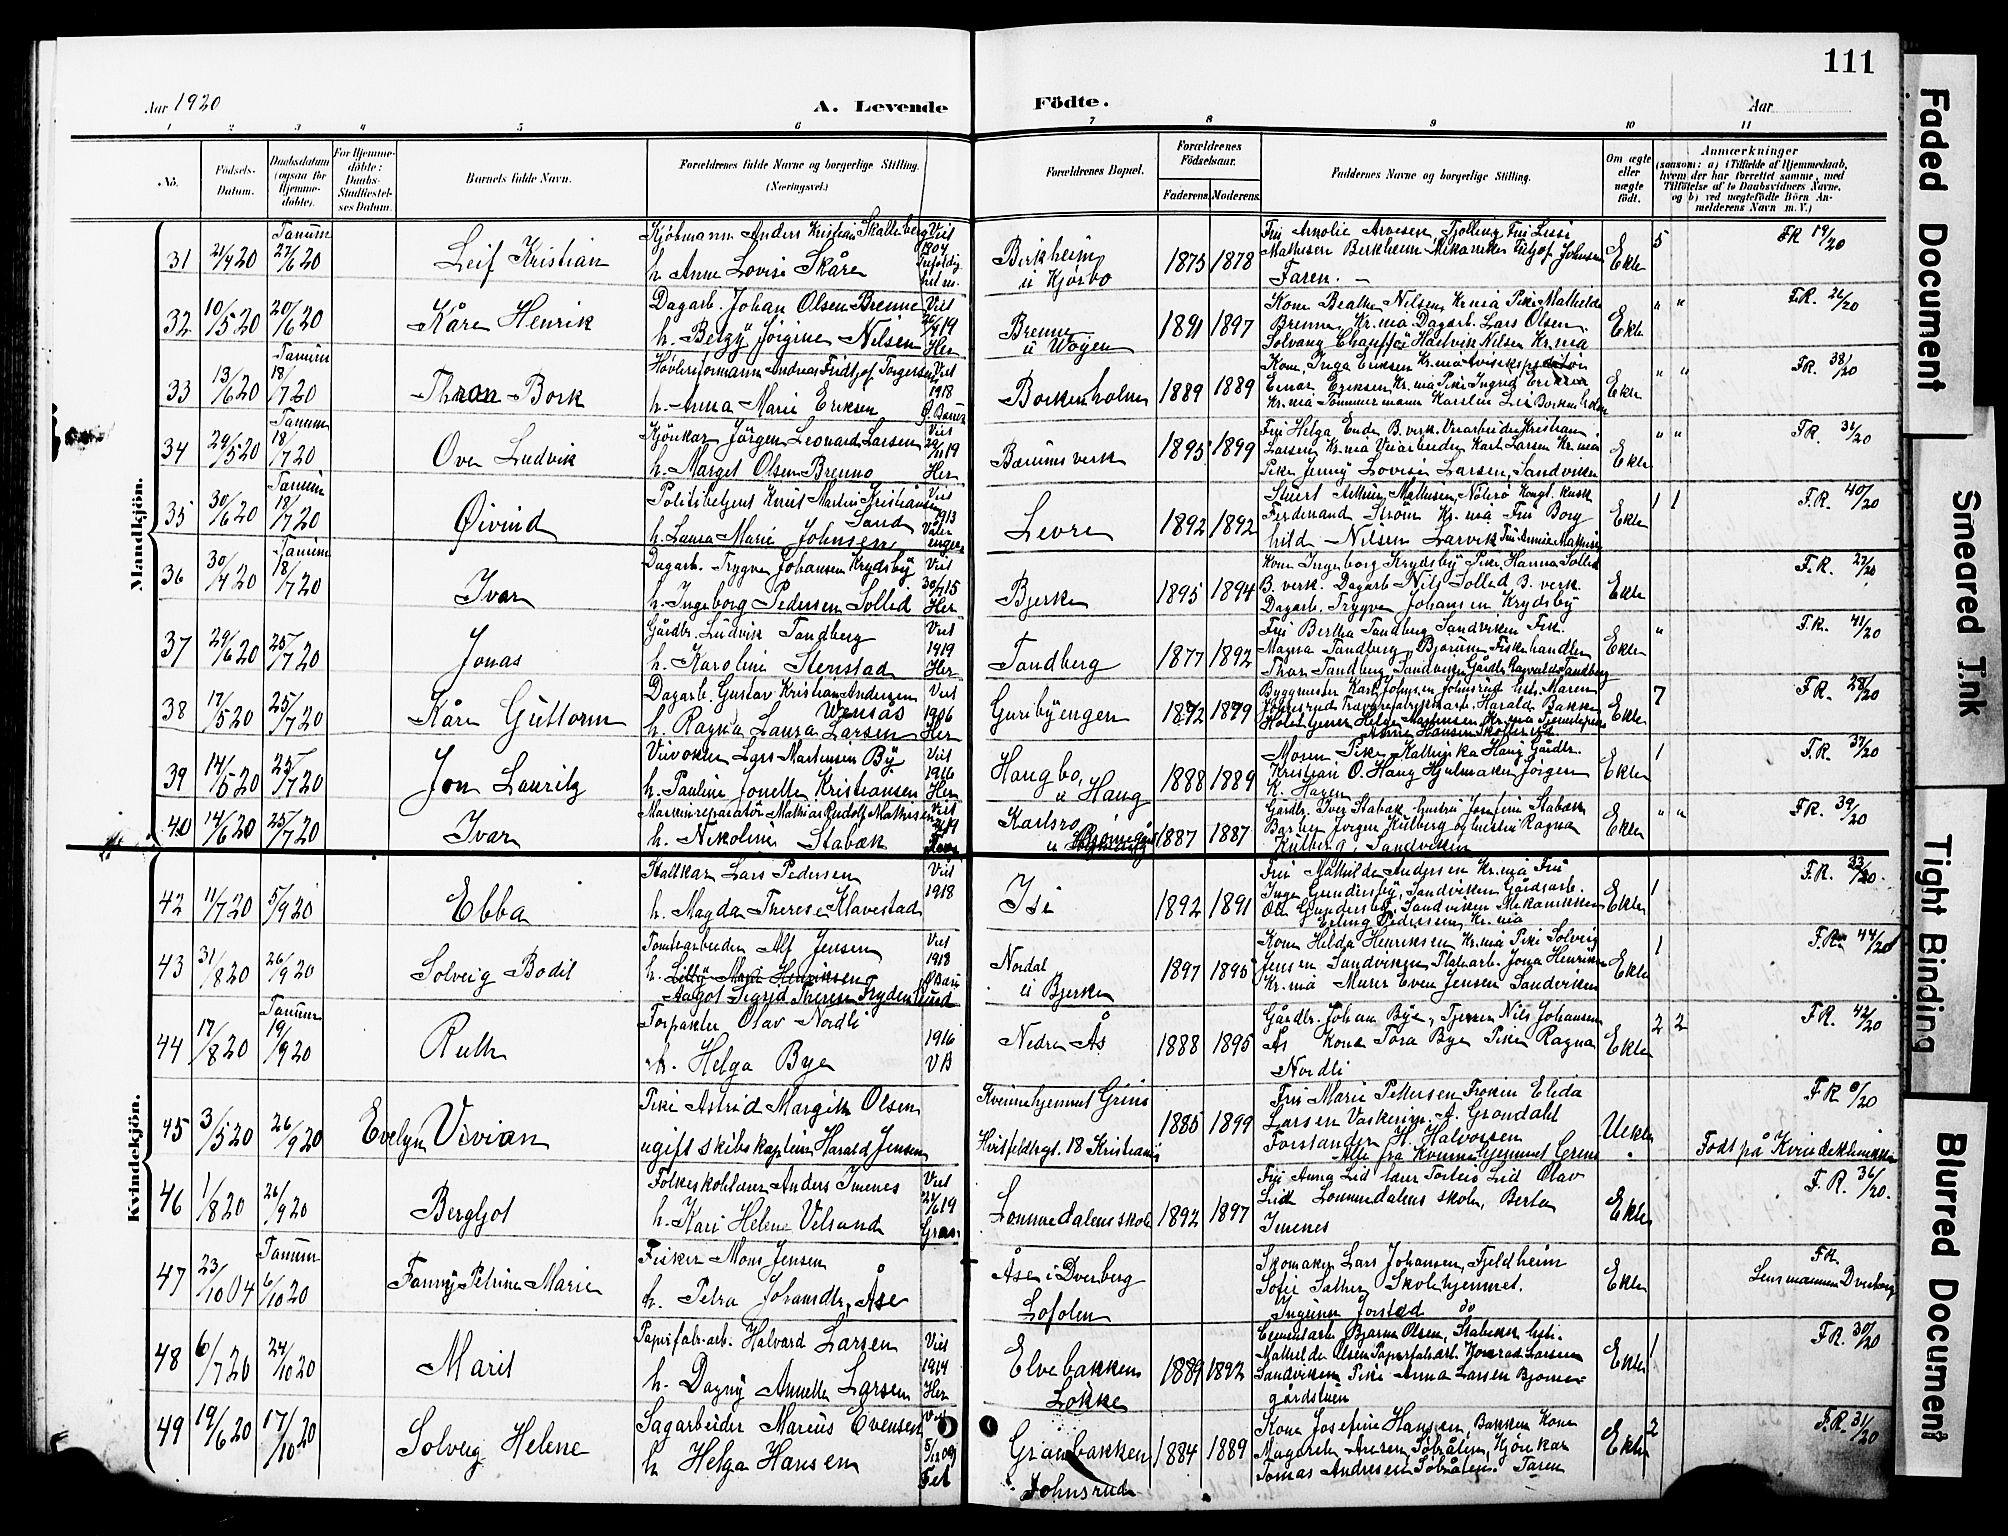 111
Aar 1920
A. Levende
Födte.
Aar
1 2 3 4 5 6 7 8 9 10 11
No.
Födsels-Datum.
Daabsdatum (ogsaa for Hjemme-döbte).
For Hjemme-döbte: Daabs-Stadfæstel-ses Datum.
Barnets fulde Navn.
Forældrenes fulde Navne og borgerlige Stilling.
(Næringsvei.)
Forældrenes Bopæl.
Forældrenes Födselsaar.
Faderens. Moderens.
Faddernes Navne og borgerlige Stilling.
Om ægte eller uægte födt.
Anmærkninger
(saasom: a) i Tilfælde af Hjemmedaab, hvem der har forrettet samme, med Tilföielse af to Daabsvidners Navne. og b) ved uægtefödte Börn Anmelderens Navn m. V.)
Mandkjön.
31 21/4 20 Tanum 27/6 20 Leif Kristian
Kjøbmann Anders Kristian Skalleberg Viet 1904
h. Anna Lovise Skåre
Birkheim u Kjørbo 1875 1878
Faren.
Ekte 5 FR 19/20
32 10/5 20 20/6 20 Kåre Henrik
Dagarb. Johan Olsen Brenne Viet
h. Betzy Jørgine Nilsen Her
Brenne u Wøyen 1891 1897
Kone Beathe Nilsen, Kr.nia Pike Mathilde
Brenne, Kr.nia Dagarb. Lars Olsen
Solvang Chauffør Halvin Nilsen Kr.nia
Ekte " " F.R. 26/20
33 13/6 20 Tanum 18/7 20 Thron Bork
Høvleriformann Andreas Fridtjof Torgersen Viet 1918
h. Anna Marie Eriksen
Borkenholm 1889 1889
Kone, Inga Eriksen Kr.nia
Einar Eriksen, Kr.nia Pike Ingrid Eriksen
Kr.nia Tømmermann Karsten Lie Borkenholm
Ekte " " FR. 38/20
34 29/5 20 Tanum 18/7 20 Ove Ludvik
Kjørekar Jørgen Leonard Larsen Viet
h. Margit Olsen Brenno Her
Bærums verk 1895 1899
Larsen Kr.nia Veiarbeider Karl Larsen Kr.nia
Pike Jenny Lovise Larsen, Sandviken
Ekte " " FR. 31/20
35 30/6 20 Tanum 18/7 20 Øivind
Politibetjent Knut Martin Kristiansen Sand Viet 1913
h. Laura Marie Johnsen
Levre 1892 1892
Stuert Arthur Mathisen, Nøterø Kongl. kusk
Ferdinand Strøm Kr.nia Frü Borg
hild Nilsen Larvik Frü Annie Mathisen
Ekte 1 1 F.R. 40/20
36 30/4 20 Tanum 18/7 20 Ivar
Dagarb. Trygve Johansen Krydsby Viet 30/ 15
h. Ingeborg Pedersen Solled Her
Bjerke 1895 1894
Kone Ingeborg Krydsby Pike Hanna Solled
B. verk. Dagarb Nils Solled B. verk
Dagarb. Trygve Johansen Krydsby
Ekte F.R. 27/20
37 29/6 20 25/7 20 Jonas
Gårdbr. Ludvik Tandberg Viet 1919
h. Karoline Stenstad Her
Tandberg 1877 1892
Frü Bertha Tandberg Sandviken Frk.
Magna Tandberg, Bjørum Fiskehandler
Thor Tandberg, Sandviken Gårdbr. Ragvald Tandberg
Ekte " F.R. 41/20
38 17/5 20 25/7 20 Kåre Guttorm
Dagarb. Gustav Kristian Andersen Wensås Viet 1906
h. Ragna Laura Larsen Her
Guribyengen 1872 1879
Byggmester Karl Johnsen Johnsrud
Ekte 7 F.R. 28/20
39 14/5 20 25/7 20 Jon Lauritz
Veivokter Lars Martinsen By Viet 1916
h. Pauline Jonette Kristiansen Her
Haugbo, u Haug 1888 1889
Moren Pike Kathinka Haug Gårdbr.
Kristian O. Haug Hjulmaker Jørgen
K. Haren
Ekte 1 F.R. 37/20
40 14/6 20 25/7 20 Ivar
Maskinreparatør Mathias Rudolf Mathisen Viet
h. Nikoline Stabæk
Karlsro u 1887 1887
Gårdbr. Iver Stabæk hustru Josefine Stabæk
Jørgen Kulberg og hustru Ragna
Kulberg, Sandviken
Ekte " " FR. 39/20
Kvindekjön.
42 11/7 20 5/9 20 Ebba
Stallkar Lars Pedersen Viet 1918
h. Magda Therese Klavestad
Isi 1892 1891
Frü Mathilde Andersen Kr.nia Frü
Inga Gundersby, Sandviken Gårdsarb.
Ole Gundersby, Sandviken Mekanikker
Erling Pedersen Kr.nia
Ekte 1 F.R. 33/20.
43 31/8 20 26/9 20 Solveig Bodil
Tomtearbeider Alf Jensen Viet 1918
h. Lilly Marie Henriksen
Aagot Sigrid Therese Frydenlund
Nordal u Bjerke 1897 1895
Kone Hilda Henriksen Kr.nia Pike Solveig
Jensen Sandviken Platearb. Jona Henriksen
Kr.nia Murer Even Jensen Sandviken
Ekte 1 F.R. 44/20
44 17/8 20 Tanum 19/9 20 Ruth
Forpakter Olav Nordli 1916
h. Helga Bye VB
Nedre Ås 1888 1895
Gårdbr. Johan Bye, Tjener Nils Johansen
Ås Kone Tora Bye Pike Ragna
Nordli
Ekte 2 2 FR. 42/20
45 3/5 20 26/9 20 Evelyn Vivian
Pike Astrid Margith Olsen
ugift skibskaptein Harald Jensen
Kvinnehjemmet Grini
Hvitfeldtsgt. 18 Kristiania
1885 1899
Frü Marie Pettersen Frøken Elida
Larsen Vaskerinne A. Grøndahl
Forstander H. Halvorsen
Alle fra Kvinnehjemmet Grini
Uekte F R 0/20
Født på Kvindeklinikken
46 1/8 20 26/9 20 Bergljot
Folkeskolelærer Anders Imenes Viet
h. Kari Helene Velsand Gran
Lommedalens skole 1892 1897
Frü Anna Lid lærer Torleiv Lid Olav
Lid Lommedalens skole, Berta
Imenes
Ekte F.R. 36/20.
47 23/10 04 Tanum 6/10 20 Fanny Petrine Marie
Fisker Mons Jensen
h. Petra Johansdtr. Åse
Åse i Dverberg Lofoten
Skomaker Lars Johansen, Fjeldheim
Sofie Sather, Skolehjemmet.
Ingunn Jorstad do
Ekte FR
Lensmannen Dverberg
48 6/7 20 24/10 20 Marit
Papirfabr.arb. Halvard Larsen Viet 1914
h. Dagny Annette Larsen Her
Elvebakken Løkke 1889 1892
Cementarb Bjarne Olsen, Stabekk hstr.
Mathilde Olsen Papirfabr.arb. Konrad Larsen
Sandviken Pike Anna Larsen Bjørne-
gårdstuen
Ekte 1 F.R. 30/20
49 19/6 20 17/10 20 Solveig Helene
Sagarbeider Marius Evensen Viet 5/12 09
h Helga Hansen Fet
Granbakken Johnsrud 1884 1889
Kone Josefine Hansen, Bakken Kone
Magarethe Andersen Søbråten, Kjørekar
Tomas Andresen Søbråten. Faren
Ekte 2 F.R. 31/20
Faded Document
Smeared Ink
Tight Binding
Blurred Document